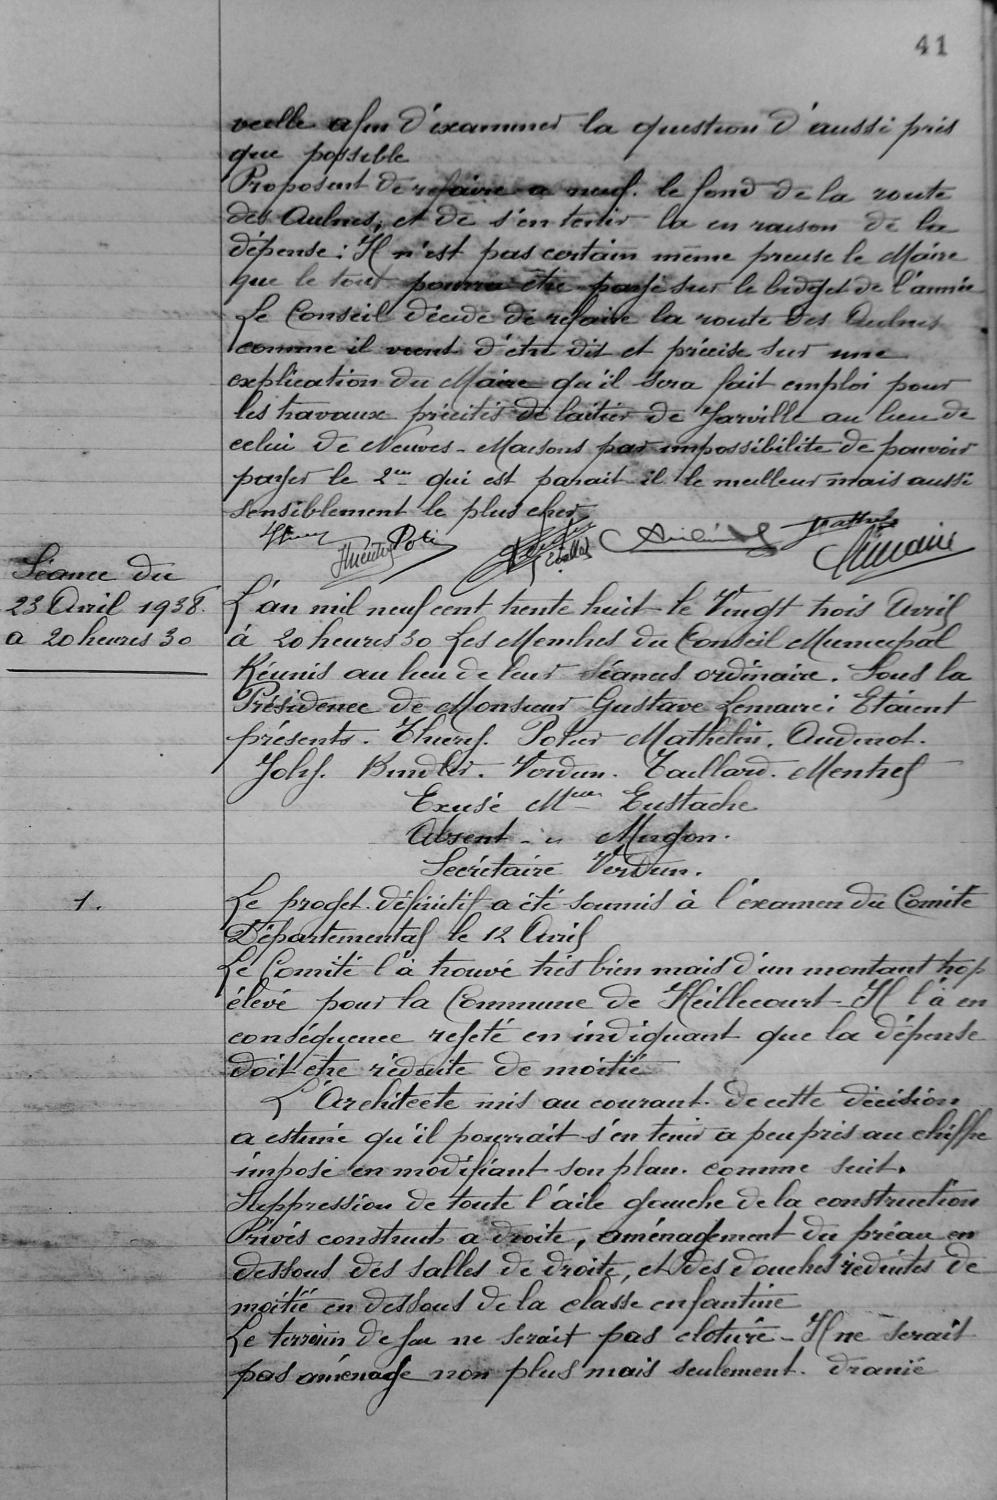 41
veille afin d'examiner la question d'aussi près
que possible
Proposent de refaire a neuf. le fond de la route
des Aulnes, et de s'en tenir la en raison de la
dépense: Il n'est pas certain même preuse le Maire
que le tout pourra être payé sur le budget de l'année
Le Conseil décide de refaire la route des Aulnes
comme il vient d'être dit et précise sur une
explication du Maire qu'il sera fait emploi pour
les travaux précités de laitier de Jarville au lieu de
celui de Neuves-Maisons par impossibilité de pouvoir
payer le 2me qui est parait il le meilleur mais aussi
sensiblement le plus cher
Séance du
23 Avril 1938.
a 20 heures 30
L'an mil neuf cent trente huit le Vingt trois Avril
à 20 heures 30 Les Membres du Conseil Municipal
Réunis au lieu de leur séances ordinaire. Sous la
Présidence de Monsieur Gustave Lemaire: Etaient
présents. Thiery. Potier Mathelin. Audinot.
Joly. Kindler. Verdun. Taillard. Mentrel
Exusé Mrs Eustache
Absent - " Mugon.
Secrétaire Verdun.
1.
Le projet définitif a été soumis à l'examen du Comité
Départemental le 12 Avril
Le Comité l'à trouvé très bien mais d'un montant trop
élevé pour la Commune de Heillecourt - Il l'à en
conséquence rejeté en indiquant que la dépense
doit etre réduite de moitié
L'Architecte mis au courant. de cette décision
a estimé qu'il pourrait s'en tenir a peu près au chiffre
imposé en modifiant son plan. comme suit.
Suppression de toute l'aile gauche de la construction
Privés construits a droite, aménagement du préau en
dessous des salles de droite, et des douches réduites de
moitié en dessous de la classe enfantine
Le terrain de jeu ne serait pas cloturé - Il ne serait
pas aménagé non plus mais seulement. drainé